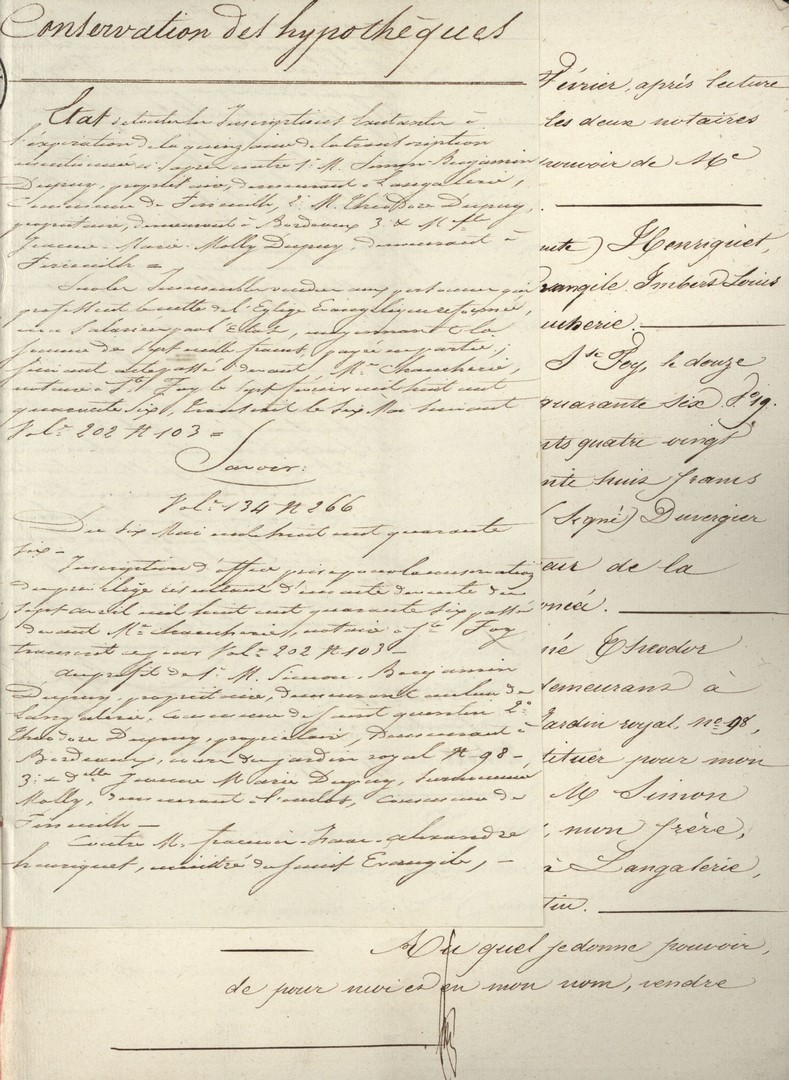 Conservation des hypothèques
Etat de toutes les Inscriptions existantes à
l'expiration de la quinzaine de la transcription
mentionnée ci après contre 1º M. Simon-Benjamin
Dupuy, propriétaire, demeurant à Langalerie,
Commune de 2º M. Théodore Dupuy,
propriétaire, demeurant à Bordeaux 3º & Mlle
Jeanne-Marie-Molly Dupuy, demeurant à
Sur les Immeubles vendus aux personnes qui
professent le culte de l'Eglise Evangélique réformée,
non Salariée par l'Etat, moyennant la
somme de sept mille francs, payée en partie;
suivant acte passé devant Me
notaire à Ste Foy le sept février mil huit cent
quarante six, transcrit le six Mai suivant
Vol. 202 Nº 103 =
Savoir:
Vol. 134 Nº 266
Du six Mai mil huit cent quarante
six -
Inscription d'office prise pour la conservation
du privilège résultant d'un acte de vente du
sept avril mil huit cent quarante six passé
devant Me notaire à Ste Foy
transcrit ce jour Vol. 202 Nº 103 -
au profit de 1º M. Simon-Benjamin
Dupuy, propriétaire, demeurant au lieu de
Langalerie, Commune de Saint quentin 2º
Théodore Dupuy, propriétaire, demeurant à
Bordeaux, cours du jardin royal Nº 98 -,
3º & dlle Jeanne Marie Dupuy, surnommée
Molly, demeurant commune de
Contre M. françois-Isaac-alexandre
henriquet, ministre du Saint Evangile, -
Février, après lecture
les deux notaires
pouvoir de Me
Henriquet,
vangile. Imbert Louis
ucherie.
Ste Foy, le douze
quarante six. fo 19.
nts quatre vingt
nte huis francs
(Signé) Duvergier
eur de la
oncé.
né Théodor
demeurant à
Jardin royal, nº 98,
tituer pour mon
M Simon
, mon frère,
à Langalerie,
tin.
Au quel je donne pouvoir,
de pour moi et en mon nom, vendre